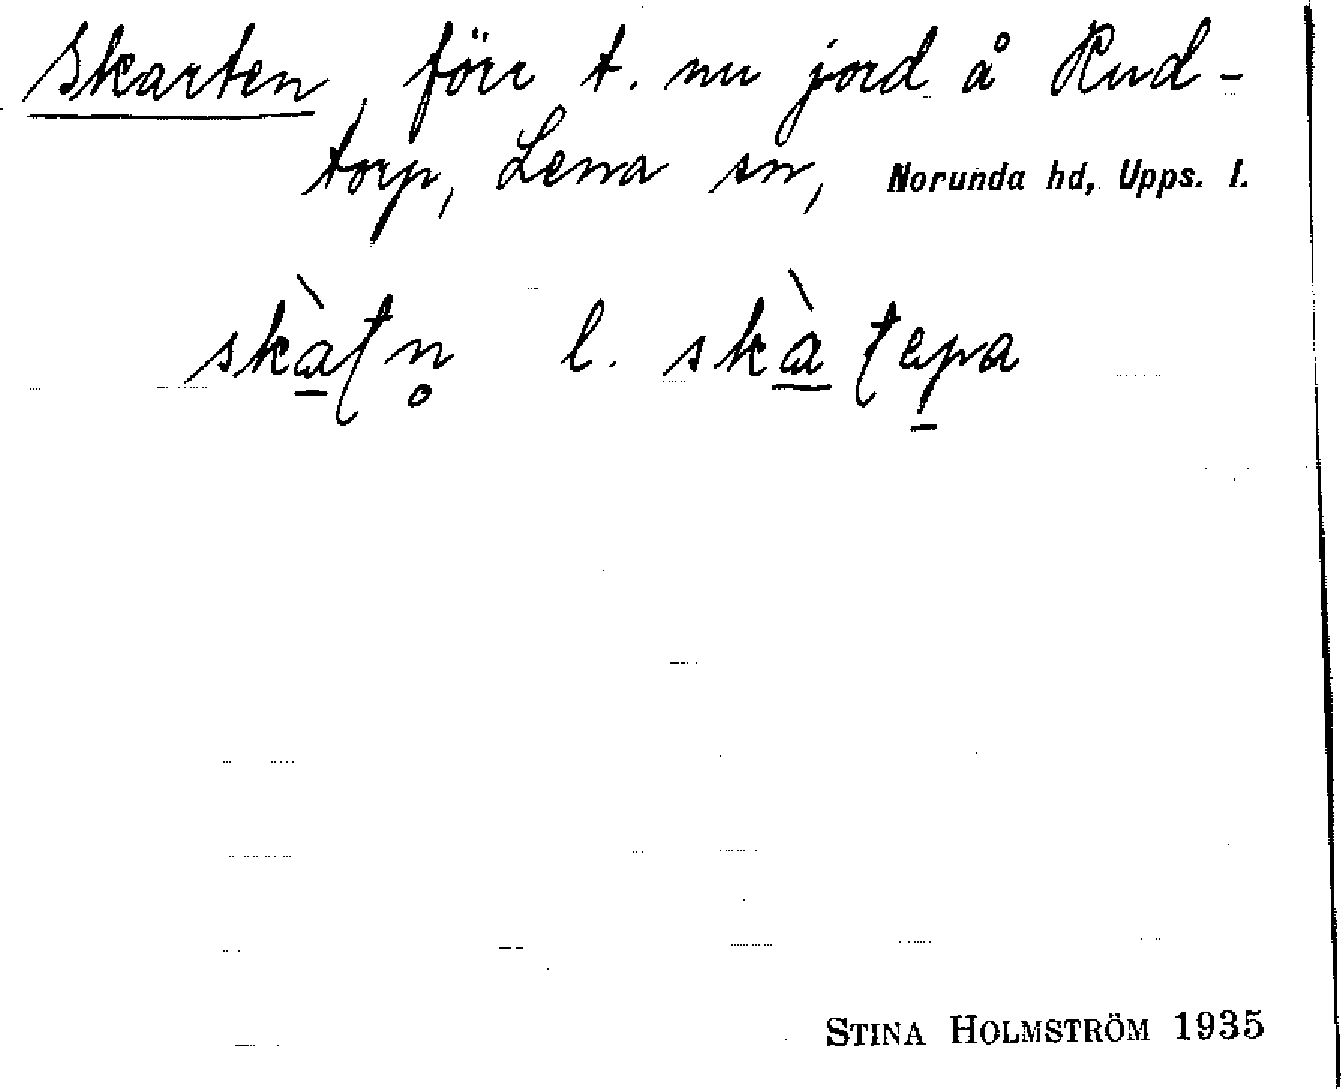 Skarten, förr t. nu jord å Rud-
torp, Lena sn, Norunda hd, Upps. l.
skàʈn̥ l. skàʈepa
STINA HOLMSTRÖM 1935